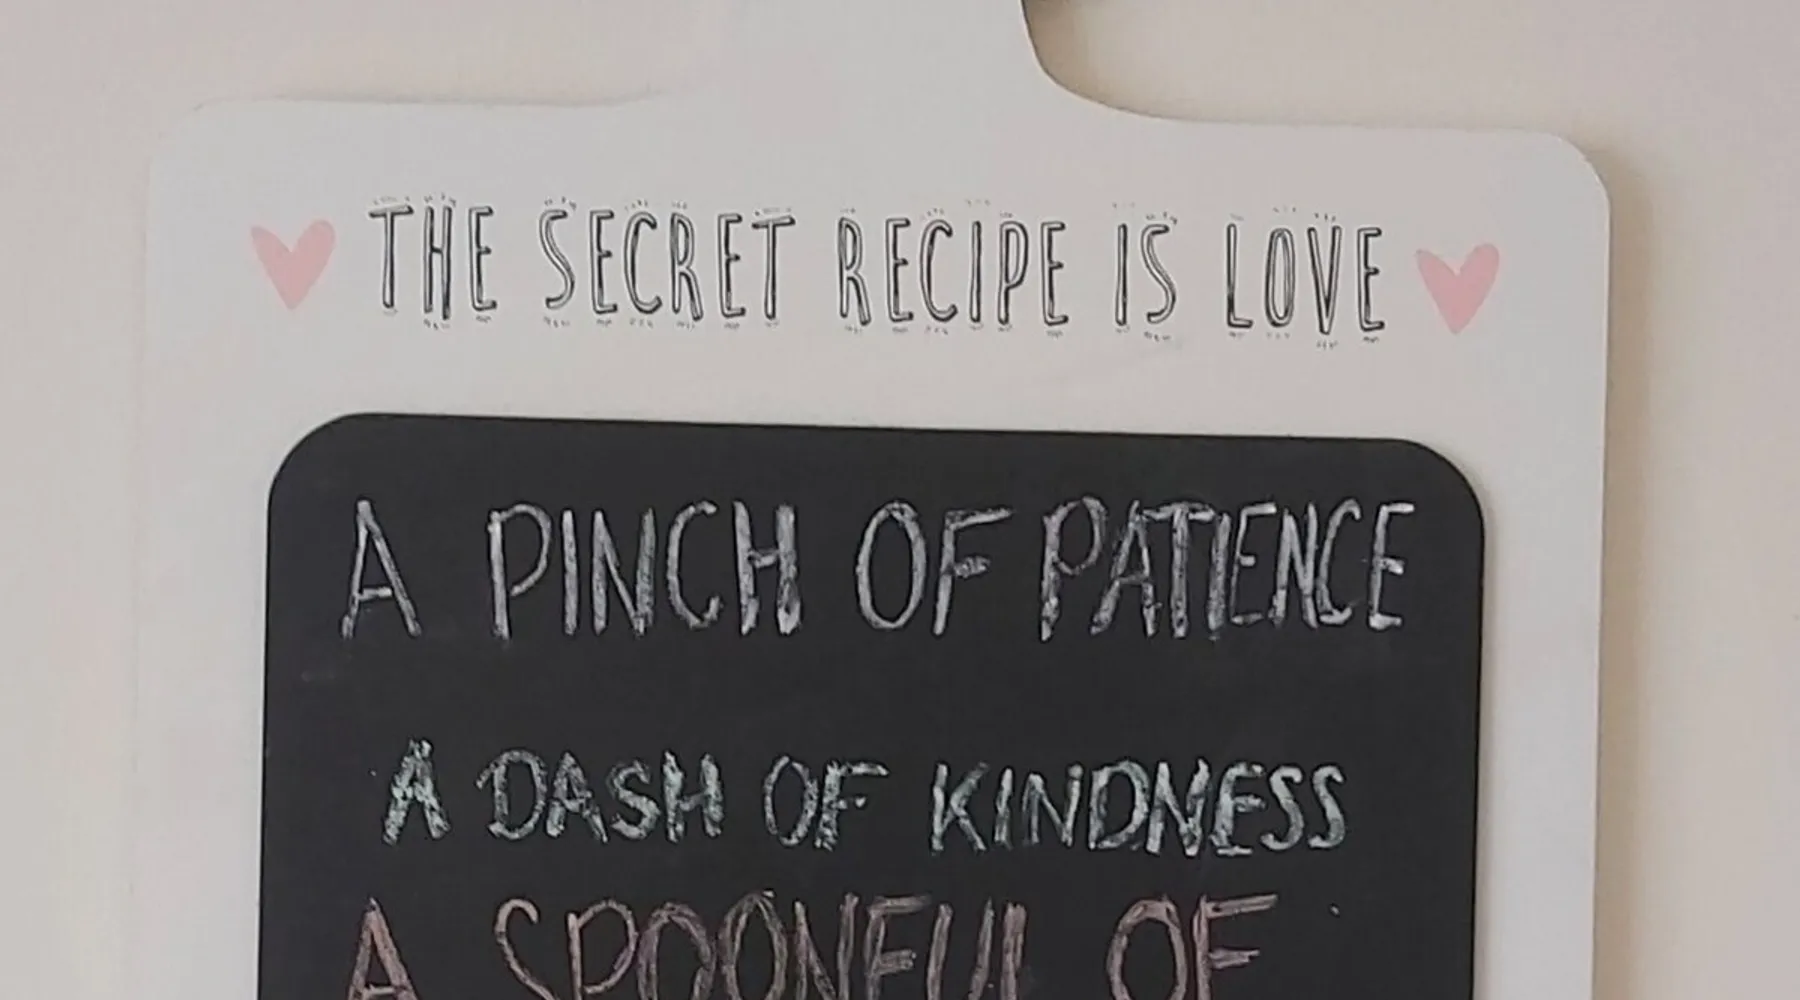 THE SECRET RECIPE IS LOVE
A PINCH OF PATIENCE
A DASH OF KINDNESS
A SPOONFUL OF